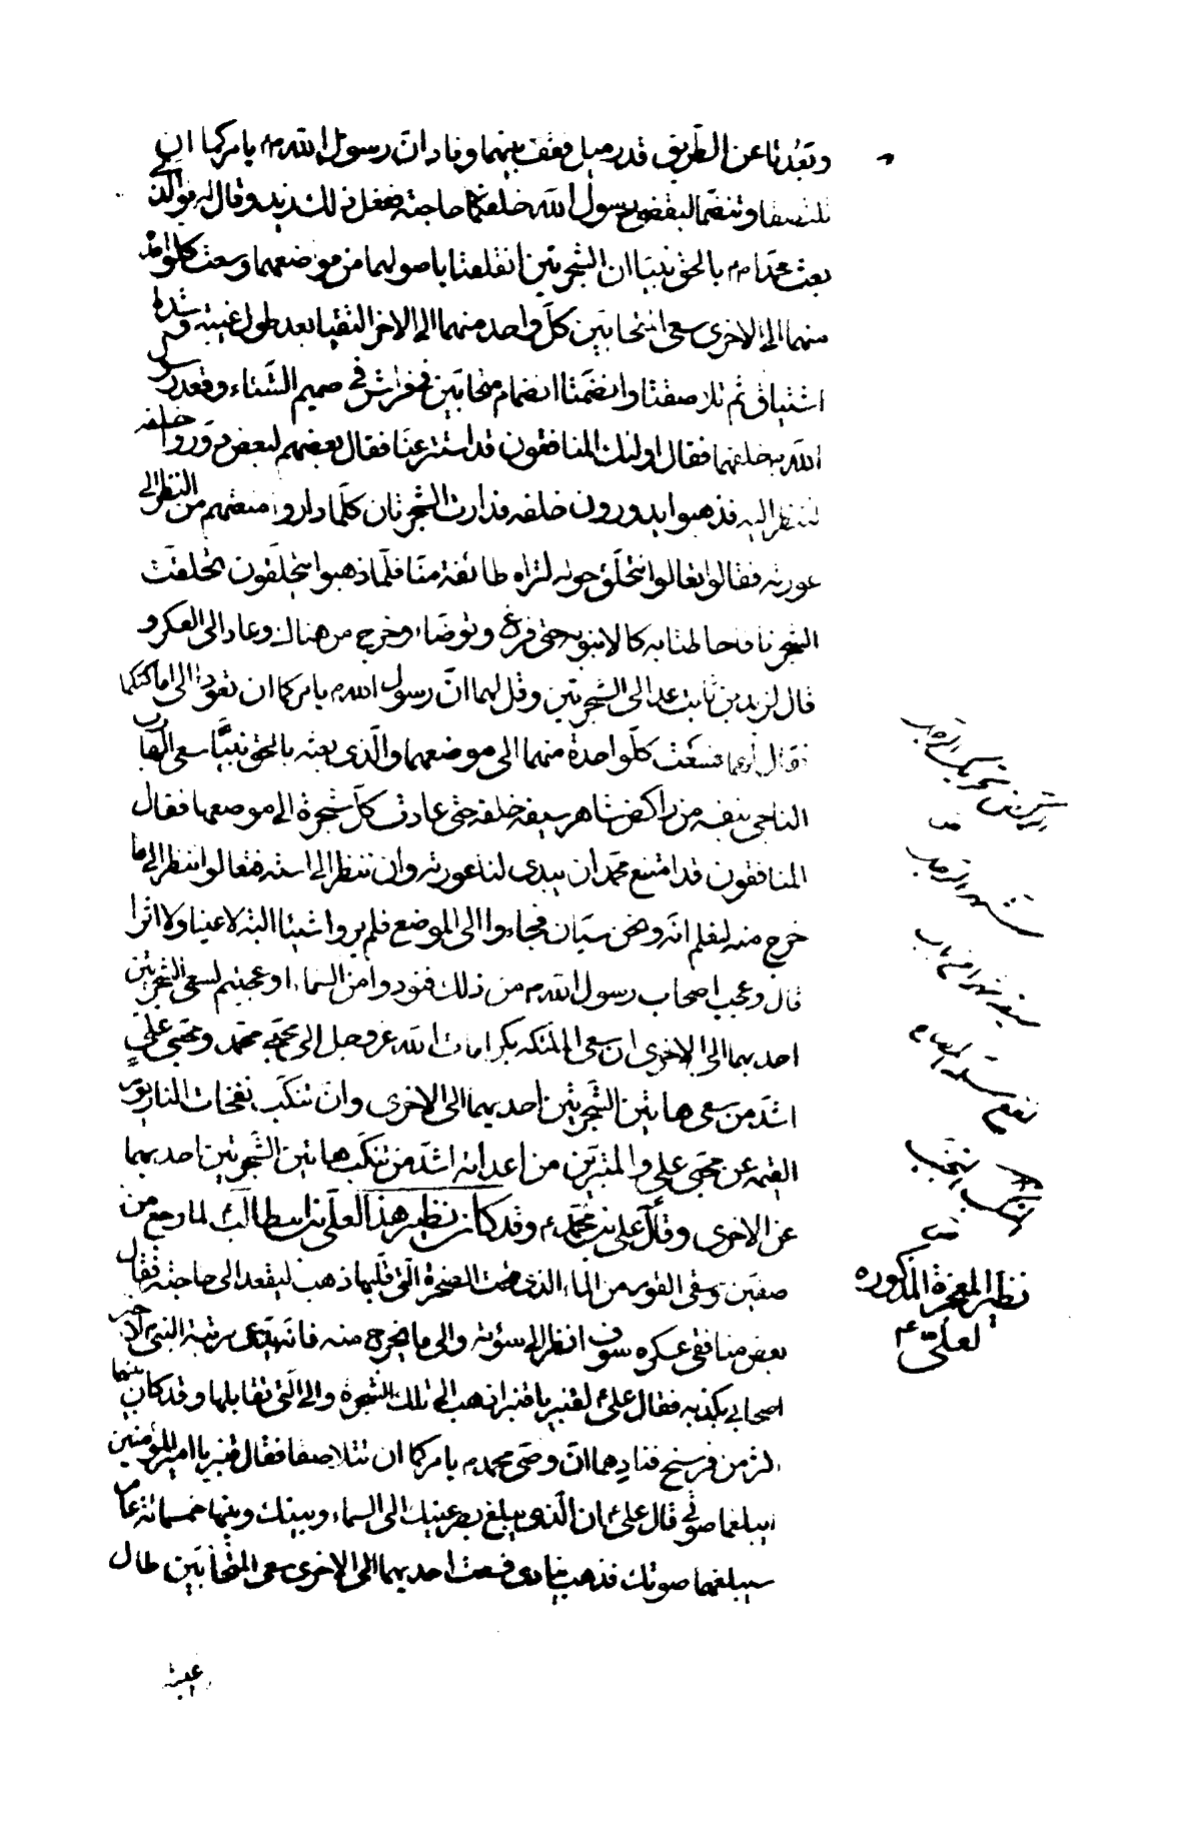 وتعدتا عن الطريق قدر ميل فقف بينهما وناد ان رسول الله ص يامركما ان
تلتصقا وتنضما ليقضي رسول الله خلفكما حاجته ففعل ذلك زيد وقال له فوالذى
بعث محمدا ص بالحق نبيا ان الشجرتين انقلعتا باصولهما من موضعهما وسعت كل واحدة
منهما الى الاخرى سعى المتحابين كل واحد منهما الى الاخر التقيا بعد طول غيبته وشدة
اشتياق ثم تلاصقتا وانضمتا انضمام متحابين فى فراش فى صميم الشتاء وقعد رسول
الله ص خلفهما فقال اولئك المنافقون قد استتر عنا فقال بعضهم لبعض دوروا خلفه
لننظر اليه فذهبوا يدورون خلفه فدارت الشجرتان كلما داروا منعتهم من النظر الى
عورته فقالوا تعالوا نتحلق حوله لتراه طائفة منا فلما ذهبوا يتحلقون تحلقت
الشجرتان فاحاطتا به كالانبوبة حتى فرغ وتوضاء وخرج من هناك وعاد الى العسكر و
قال لزيد بن ثابت عد الى الشجرتين وقل لهما ان رسول الله ص يامركما ان تعودا الى اماكنكما
فقال لهما فسعت كل واحدة منهما الى موضعهما والذى بعثه بالحق نبيا سعى الهارب
الناجى بنفسه من راكض شاهر سيفه خلفه حتى عادت كل شجرة الى موضعها فقال
المنافقون قد امتنع محمد ان يبدى لنا عورته وان ننظر الى استه فتعالوا ننظر الى ما
خرج منه لنعلم انه ونحن سيان فجاءوا الى الموضع فلم يروا شيئا البتة لا عينا ولا اثرا
قال وعجب اصحاب رسول الله ص من ذلك فنودوا من السماء اوعجبتم لسعى الشجرتين
احديهما الى الاخرى ان سعى الملئكة بكرامات الله عز وجل الى محبى محمد ومحبى على
اشد من سعى هاتين الشجرتين احديهما الى الاخرى وان تنكب نفحات النار يوم
القيمة عن محبى على والمتبرين من اعدائه اشد من تنكب هاتين الشجرتين احديهما
عن الاخرى وقد كان نظير هذا لعلى بن ابيطالب لما رجع من
صفين وسقى القوم من الماء الذى تحت الصخرة التى قلبها ذهب ليقعد الى حاجته فقال
بعض منافقى عسكره سوف انظر الى سوئته والى ما يخرج منه فانه يدعى مرتبة النبى لاخبر
اصحابى بكذبه فقال على لقنبر يا قنبر اذهب الى تلك الشجرة والى التى تقابلها وقد كان بينهما
اكثر من فرسخ فنادهما ان وصى محمد ص يامركما ان تتلاصقا فقال قنبر يا امير المؤمنين
ايبلغهما صوتى قال على ان الذى يبلغ بصر عينيك الى السماء وبينك وبينها خمسمائة عام
سيبلغهما صوتك فذهب ينادى فسعت احديهما الى الاخرى سعى المتحابين طال
غيبة
نظير المعجزة المذكوره
لعلى ع